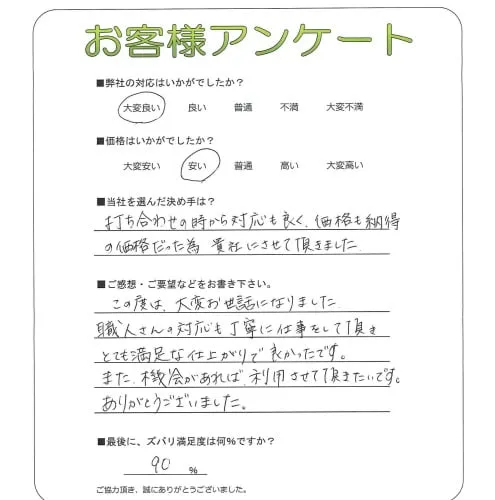 お客様アンケート
■弊社の対応はいかがでしたか？
大変良い 良い 普通 不満 大変不満
■価格はいかがでしたか？
大変安い 安い 普通 高い 大変高い
■当社を選んだ決め手は？
打ち合わせの時から対応も良く、価格も納得
の価格だった為 貴社にさせて頂きました
■ご感想・ご要望などをお書き下さい。
この度は、大変お世話になりました
職人さんの対応も丁寧に仕事をして頂き
とても満足な仕上がりで良かったです。
また、機会があれば、利用させて頂きたいです。
ありがとうございました。
■最後に、ズバリ満足度は何%ですか？
90 %
ご協力頂き、誠にありがとうございました。